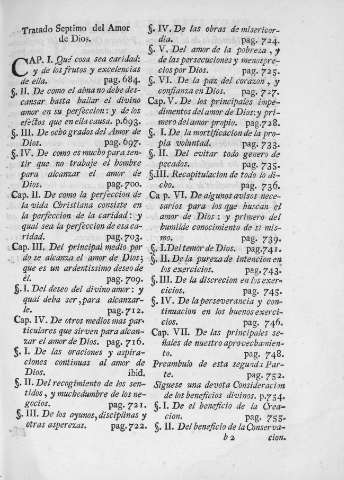 Tratado Septimo del Amor
de Dios.
CAP. I. Què cosa sea caridad;
y de los frutos y excelencias
de ella. pag. 684.
§. II. De como el alma no debe des-
cansar hasta hallar el divino
amor en su perfeccion: y de los
efectos que en ella causa. p.693.
§. III. De ocho grados del Amor de
Dios. pag. 697.
§. IV. De como es mucho para sen-
tir que no trabaje el hombre
para alcanzar el amor de
Dios. pag. 700.
Cap. II. De como la perfeccion de
la vida Christiana consiste en
la perfeccion de la caridad: y
qual sea la perfeccion de esa ca-
ridad. pag. 703.
Cap. III. Del principal medio por
do se alcanza el amor de Dios;
que es un ardentissimo deseo de
él. pag. 709.
§. I. Del deseo del divino amor: y
qual deba ser, para alcanzar-
le. pag. 712.
Cap. IV. De otros medios mas par-
ticulares que sirven para alcan-
zar el amor de Dios. pag. 716.
§. I. De las oraciones y aspira-
ciones continuas al amor de
Dios. ibid.
§. II. Del recogimento de los sen-
tidos, y muchedumbre de los ne-
gocios. pag. 721.
§. III. De los ayunos, disciplinas y
otras asperezas. pag. 722.
§. IV. De las obras de misericor-
dia. pag. 724.
§. V. Del amor de la pobreza, y
de las persecuciones y menospre-
cios por Dios. pag. 725.
§. VI. De la paz del corazon, y
confianza en Dios. pag. 727.
Cap. V. De los principales impe-
dimentos del amor de Dios: y pri-
mero del amor propio. pag. 728.
§. I. De la mortificacion de la pro-
pia voluntad. pag. 733.
§. II. Del evitar todo genero de
pecados. pag. 735.
§. III. Recapitulacion de todo lo di-
cho. pag. 736.
Cap. VI. De algunos avisos nece-
sarios para los que buscan el
amor de Dios: y primero del
humilde conocimiento de si mis-
mo. pag. 739.
§. I. Del temor de Dios. pag. 741.
§. II. De la pureza de intencion en
los exercicios. pag. 743.
§. III. De la discrecion en los exer-
cicios. pag. 745.
§. IV. De la perseverancia y con-
tinuacion en los buenos exerci-
cios. pag. 746.
Cap. VII. De las principales se-
ñales de nuestro aprovechamien-
to. pag. 748.
Preambulo de esta segunda Par-
te. pag. 752.
Siguese una devota Consideracion
de los beneficios divinos. p.754.
§. I. De el beneficio de la Crea-
cion. pag. 755.
§. II. Del beneficio de la Conserva-
b 2 cion.